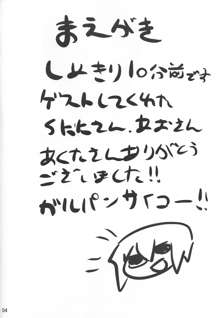 まえがき
しめきり10分前です
ゲストしてくれた
Sだださん、あおさん
あくたさんありがとう
ございました!!
ガルパンサイコー!!
04